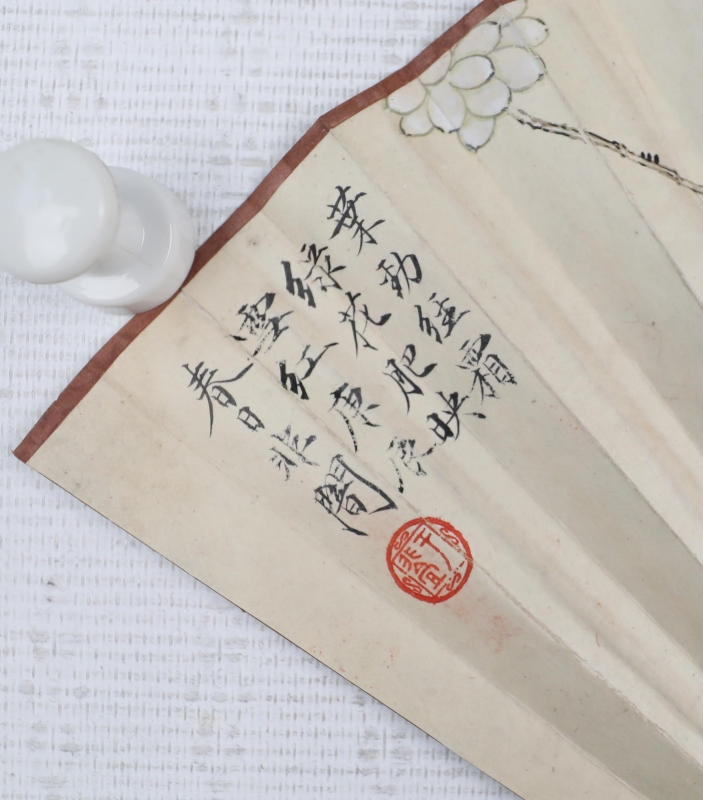 葉勁經霜
綠花肥映
紅庚辰
春日非闇